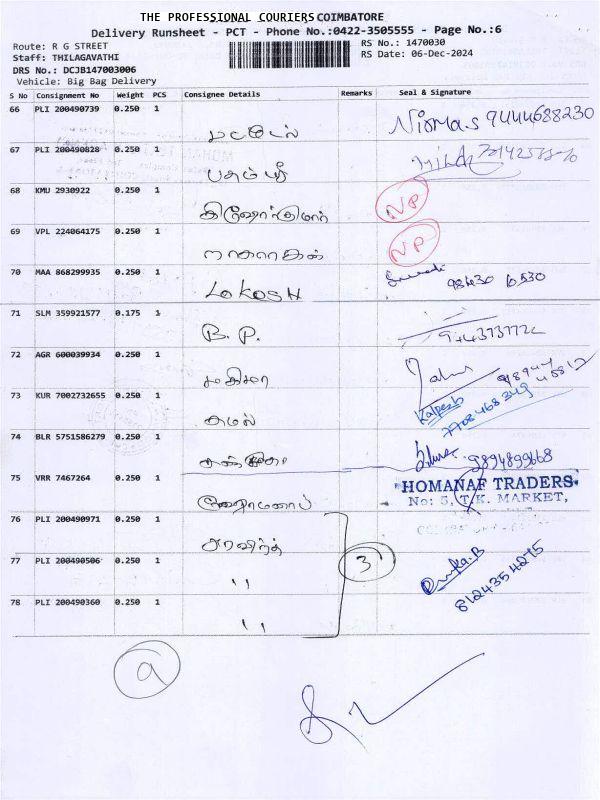 THE PROFESSIONAL COURIERS COIMBATORE
Delivery Runsheet - PCT - Phone No.:0422-3505555 - Page No.:6
Route: R G STREET
RS No.: 1470030
Staff: THILAGAVATHI
RS Date: 06-Dec-2024
DRS No.: DCJB147003006
Vehicle: Big Bag Delivery
S No Consignment No Weight PCS Consignee Details Remarks Seal & Signature
66 PLI 200490739 0.250 1 படடேல் Nirmas 9444688230
67 PLI 200490828 0.250 1
68 KMU 2930922 0.250 1 கிஷோர்குமார் NP
69 VPL 224064175 0.250 1 NP
70 MAA 868299935 0.250 1 LOKOSH
71 SLM 359921577 0.175 1 B.P.
72 AGR 600039934 0.250 1
73 KUR 7002732655 0.250 1 கமல் Kalpesh 7708468349
74 BLR 5751586279 0.250 1 9894899668
75 VRR 7467264 0.250 1 HOMANAF TRADERS
No: 5, T.K. MARKET,
76 PLI 200490971 0.250 1 அரவிந்த்
77 PLI 200490506 0.250 1 " 3
78 PLI 200490360 0.250 1 " 8124354275